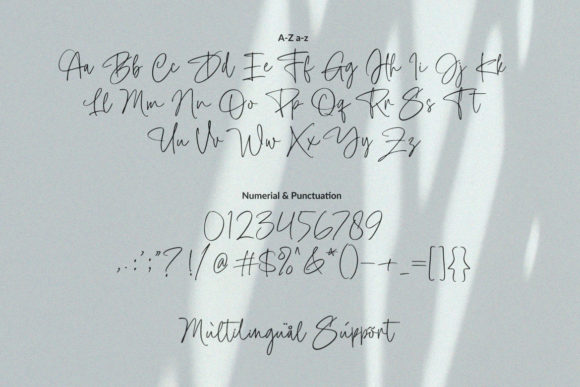 A-Z a-z
Aa Bb Cc Dd Ee Ff Gg Hh Ii Jj Kk
Ll Mm Nn Oo Pp Qq Rr Ss Tt
Uu Vv Ww Xx Yy Zz
Numerial & Punctuation
0123456789
,.:';"?!/@#$%^&*()-+_=[]{}
Mùltilingüål Súppört